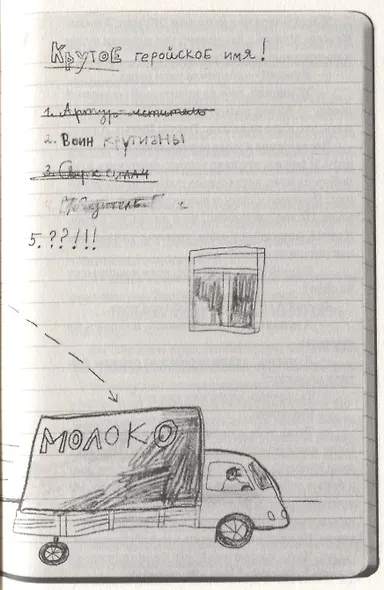 Крутое геройское имя!
1. Артур-мститель
2. Воин крутизны
3. Сверхсилач
4. Победитель
5. ??!!!
МОЛОКО